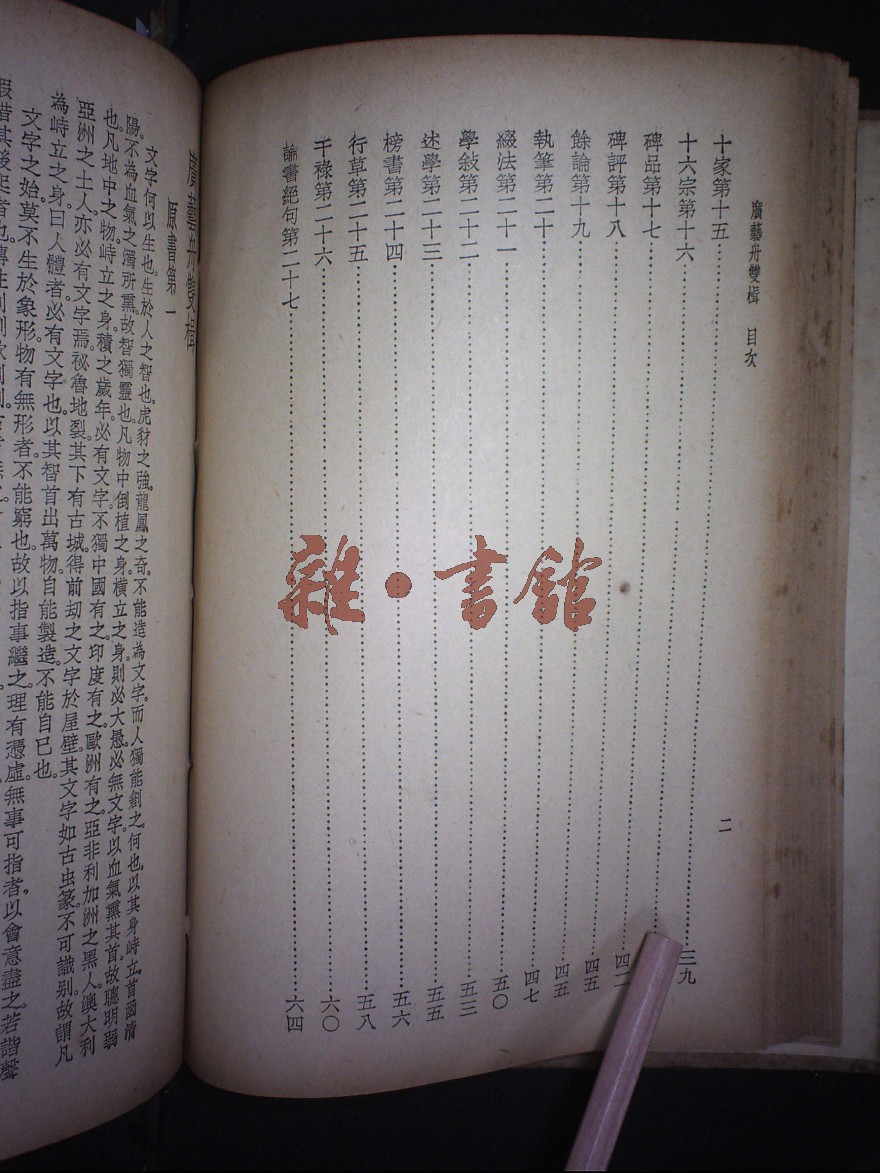 廣藝舟雙楫 目次 二
十家第十五 三九
十六宗第十六
碑品第十七
碑評第十八 四五
餘論第十九 四五
執筆第二十 四七
綴法第二十一 五〇
學敍第二十二 五三
述學第二十三 五五
榜書第二十四 五六
行草第二十五 五八
干祿第二十六 六〇
論書絕句第二十七 六四
廣藝舟雙楫
原書第一
文字何以生也。生於人之智也。虎豸之強。龍鳳之奇。不能造為文字。而人獨能創之。何也。以其身峙立。首函清
陽。不為血氣之濁所熏。故智獨靈也。凡物中倒植之身。橫立之身。則必大愚。必無文字。以血氣熏其首。故聰明弱
也。凡地中之物。峙立之身。積之歲年。必有文字。不獨中國有之。印度有之。歐洲有之。亞非利加洲之黑人。澳大利
亞洲之土人。亦必有文字焉。祕魯地裂。其下有古城。得前劫之文字於屋壁。其文字如古虫篆。不可識別。故謂凡
為峙立之身。曰人體者。必有文字也。以其智首出萬物。自能製造。不能自已也。
文字之始。莫不生於象形。物有無形者。不能窮也。故以指事繼之。理有憑虛。無事可指者。以會意盡之。若諧聲
假借。其後起者也。
雜·書館